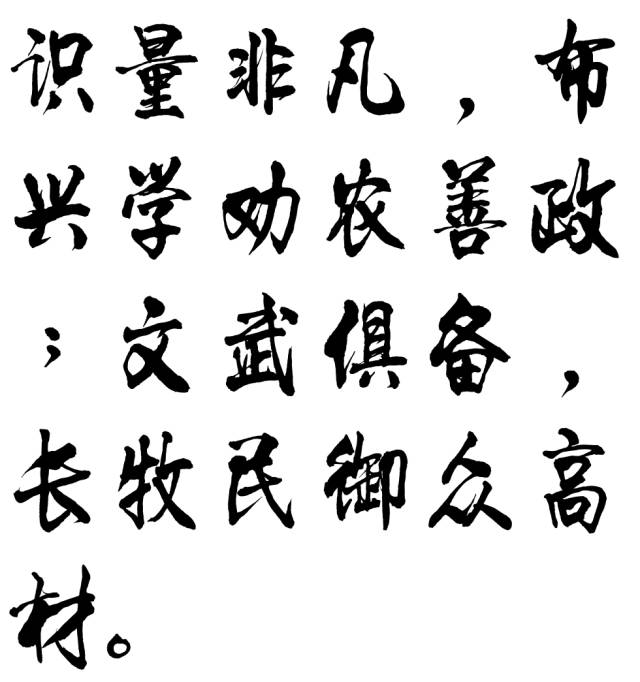 识量非凡，布
兴学劝农善政
；文武俱备，
长牧民御众高
材。